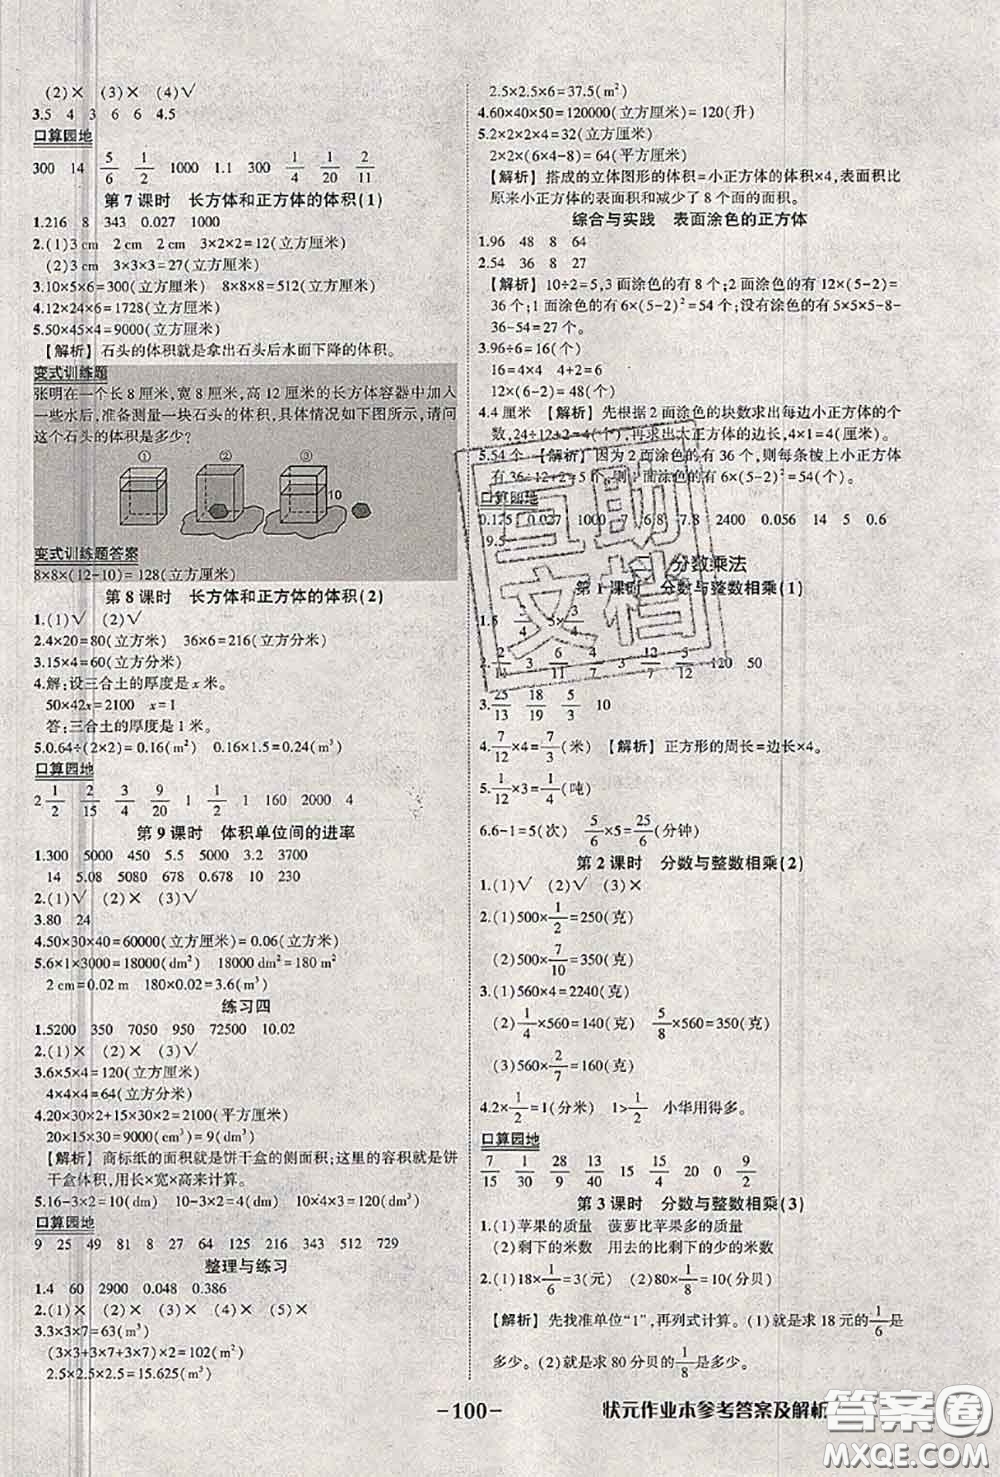 (2)× (3)× (4)√
3.5 4 3 6 6 4.5
口算园地
300 14 5/6 1/2 1000 1.1 300 1/4 1/20 2/11
第 7 课时 长方体和正方体的体积(1)
1.216 8 343 0.027 1000
2.(1)3 cm 2 cm 2 cm 3×2×2=12(立方厘米)
(2)3 cm 3×3×3=27(立方厘米)
3.10×5×6=300(立方厘米) 8×8×8=512(立方厘米)
4.12×24×6=1728(立方厘米)
5.50×45×4=9000(立方厘米)
【解析】石头的体积就是拿出石头后水面下降的体积。
变式训练题
张明在一个长 8 厘米,宽 8 厘米,高 12 厘米的长方体容器中加入
一些水后,准备测量一块石头的体积,具体情况如下图所示,请问
这个石头的体积是多少?
① ② ③
10
变式训练题答案
8×8×(12-10)=128(立方厘米)
第 8 课时 长方体和正方体的体积(2)
1.(1)√ (2)√
2.4×20=80(立方米) 36×6=216(立方分米)
3.15×4=60(立方分米)
4.解:设三合土的厚度是 x 米。
50×42x=2100 x=1
答:三合土的厚度是 1 米。
5.0.64÷(2×2)=0.16(m²) 0.16×1.5=0.24(m³)
口算园地
2 1/2 2/15 3/4 9/20 1 1/2 1 160 2000 4
第 9 课时 体积单位间的进率
1.300 5000 450 5000 3.2 3700
14 5.08 5080 678 0.678 10 230
2.(1)√ (2)× (3)√
3.80 24
4.50×30×40=60000(立方厘米)=0.06(立方米)
5.6×1×3000=18000(dm²) 18000 dm²=180 m²
2 cm=0.02 m 180×0.02=3.6(m³)
练习四
1.5200 350 7050 950 72500 10.02
2.(1)× (2)× (3)√
3.6×5×4=120(立方厘米)
4×4×4=64(立方分米)
4.20×30×2+15×30×2=2100(平方厘米)
20×15×30=9000(cm³)=9(dm³)
【解析】商标纸的面积就是饼干盒的侧面积;这里的容积就是饼
干盒体积,用长×宽×高来计算。
5.16-3×2=10(dm) 10-3×2=4(dm) 10×4×3=120(dm³)
口算园地
9 25 49 81 8 27 64 125 216 343 512 729
整理与练习
1.4 60 2900 0.048 0.386
2.(1)× (2)√ (3)× (4)× (5)×
3.3×3×7=63(立方米)
(3×3+3×7+3×7)×2=102(m²)
2.5×2.5×2.5=15.625(m³)
2.5×2.5×6=37.5(m²)
4.60×40×50=120000(立方厘米)=120(升)
5.2×2×2×4=32(立方厘米)
2×2×(6×4-8)=64(平方厘米)
【解析】搭成的立体图形的体积=小正方体的体积×4,表面积比
原来小正方体的表面积和减少了 8 个面的面积。
综合与实践 表面涂色的正方体
1.96 48 8 64
2.54 36 8 27
【解析】10÷2=5,3 面涂色的有 8 个;2 面涂色的有 12×(5-2)=
36 个;1 面涂色的有 6×(5-2)²=54 个;没有涂色的有 5×5×5-8-
36-54=27 个。
3.96÷6=16(个)
16=4×4 4+2=6(个)
12×(6-2)=48(个)
4.4 厘米 【解析】先根据 2 面涂色的块数求出每边小正方体的个
数,24÷12+2=4(个),再求出大正方体的边长,4×1=4(厘米)。
5.54 个 【解析】因为 2 面涂色的有 36 个,则每条棱上小正方体
有 36÷12+2=5(个),则 1 面涂色的有 6×(5-2)²=54(个)。
口算园地
0.125 0.027 1000 7 6.8 7.8 2400 0.056 14 5 0.6
19.5
分数乘法
第 1 课时 分数与整数相乘(1)
3.25/13 18/19 5/3 10
4.7/12×4=7/3(米) 【解析】正方形的周长=边长×4。
6.6-1=5(次) 5/6×5=25/6(分钟)
第 2 课时 分数与整数相乘(2)
1.(1)√ (2)√ (3)×
2.(1)500×1/2=250(克)
(2)500×7/10=350(克)
3.(1)560×4=2240(克)
(2)1/4×560=140(克) 5/8×560=350(克)
(3)560×2/7=160(克)
4.2×1/2=1(分米) 1>1/2 小华用得多。
口算园地
7/15 1/30 28/9 13/40 15 15/4 20 0 9/2
第 3 课时 分数与整数相乘(3)
1.(1)苹果的质量 菠萝比苹果多的质量
(2)剩下的米数 用去的比剩下的多的米数
2.(1)18×1/6=3(元) (2)80×1/8=10(分贝)
【解析】先找准单位“1”,再列式计算。(1)就是求 18 元的1/6是
多少。(2)就是求 80 分贝的1/8是多少。
-100-
状元作业本参考答案及解析
答案圈
MXQE.COM
互助文档